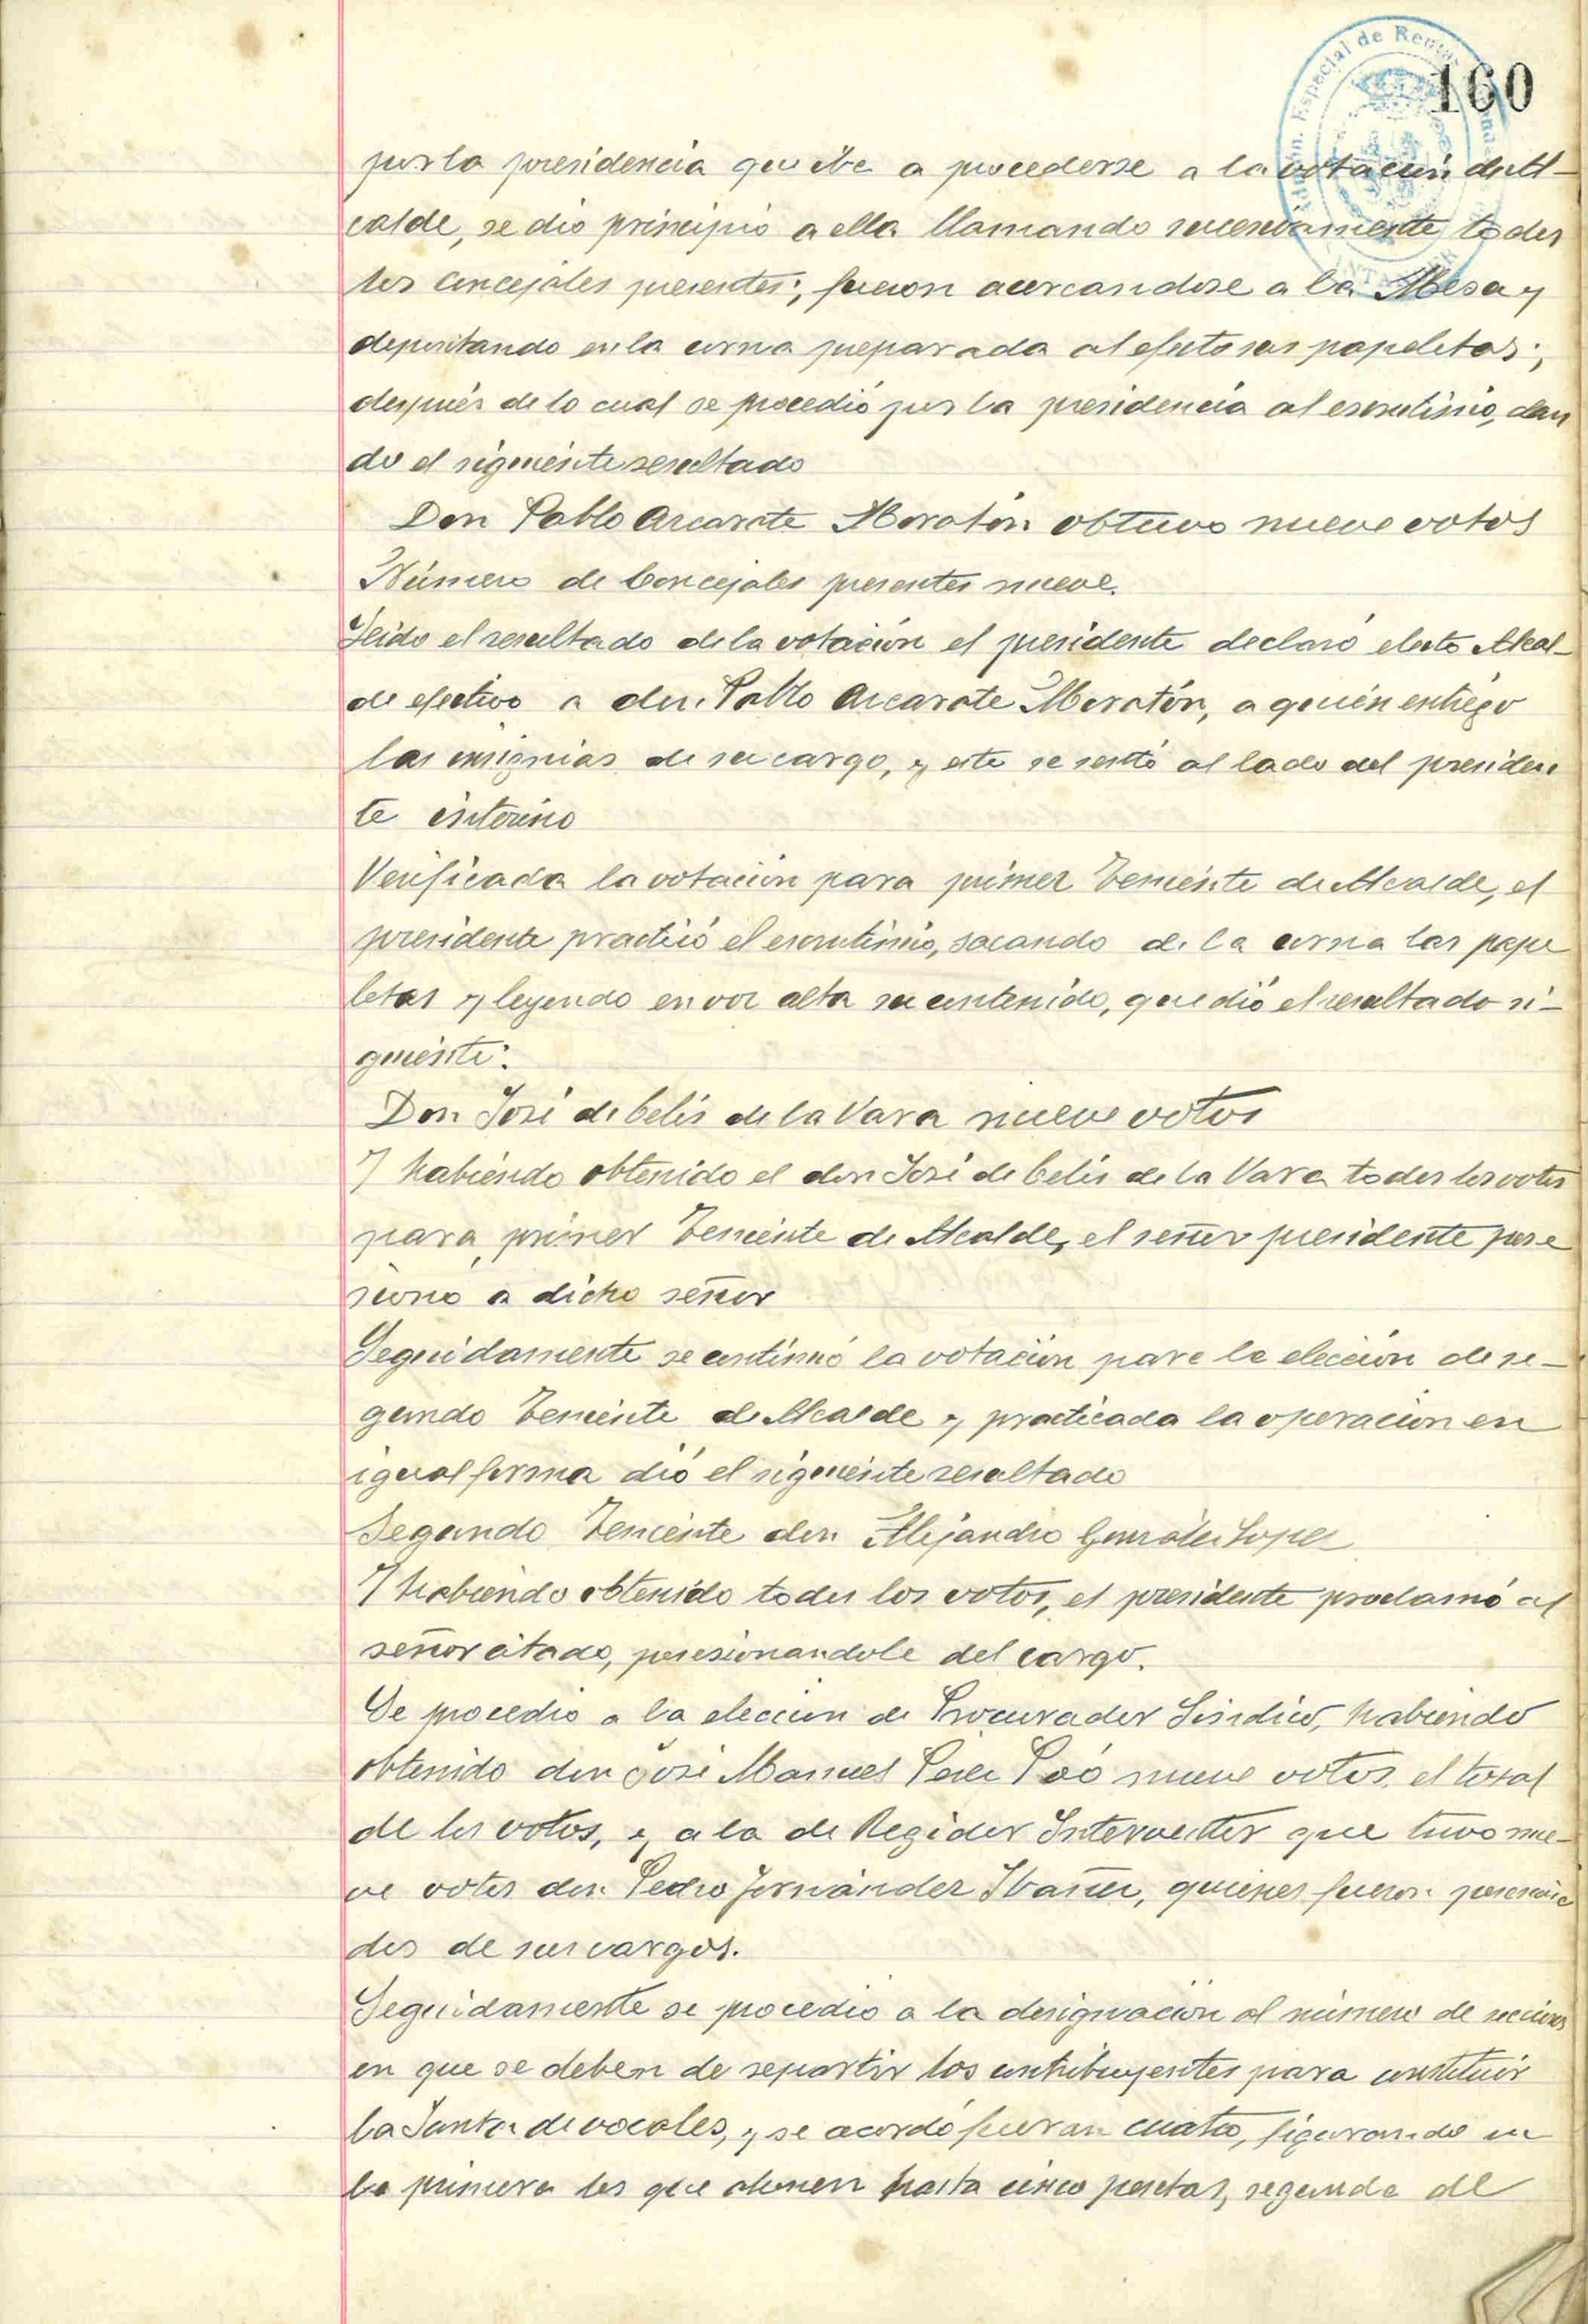 160
Admón. Especial de Rentas
SANTANDER
por la presidencia que iba a procederse a la votación de Al-
calde, se dio principio a ella llamando sucesivamente todos
los concejales presentes; fueron acercandose a la Mesa y
depositando en la urna preparada al efecto sus papeletas;
después de lo cual se procedió por la presidencia al escrutinio, dan
do el siguiente resultado
Don Pablo Arcarate Moratón obtuvo nueve votos
Número de Concejales presentes nueve.
Leido el resultado de la votación el presidente declaró electo Alcal-
de efectivo a don Pablo Arcarate Moratón, a quién entrego
las insignias de su cargo, y este se sentó al lado del presiden
te interino
Verificada la votación para primer Teniente de Alcalde, el
presidente practicó el escrutinio, sacando de la urna las pape
letas y leyendo en voz alta su contenido, que dió el resultado si-
guiente:
Don José de Celis de la Vara nueve votos
Y habiendo obtenido el don José de Celis de la Vara todos los votos
para primer Teniente de Alcalde, el señor presidente pose
siono a dicho señor
Seguidamente se continuó la votación para la elección de se-
gundo Teniente de Alcalde y practicada la operacion en
igual forma dió el siguiente resultado
Segundo Teniente don Alejandro González Lopez
Y habiendo obtenido todos los votos, el presidente proclamó al
señor citado, posesionandole del cargo.
Se procedio a la eleccion de Procurador Sindico, habiendo
obtenido don José Manuel Perez Póo nueve votos, el total
de los votos, y a la de Regidor Interventor que tuvo nue-
ve votos don Pedro Fernández Ibañez, quienes fueron posesiona
dos de sus cargos.
Seguidamente se procedió a la designación al número de secciones
en que se deben de repartir los contribuyentes para constituir
la Junta de vocales, y se acordó fueran cuatro, figurando en
la primera los que abonen hasta cinco pesetas, segunda de